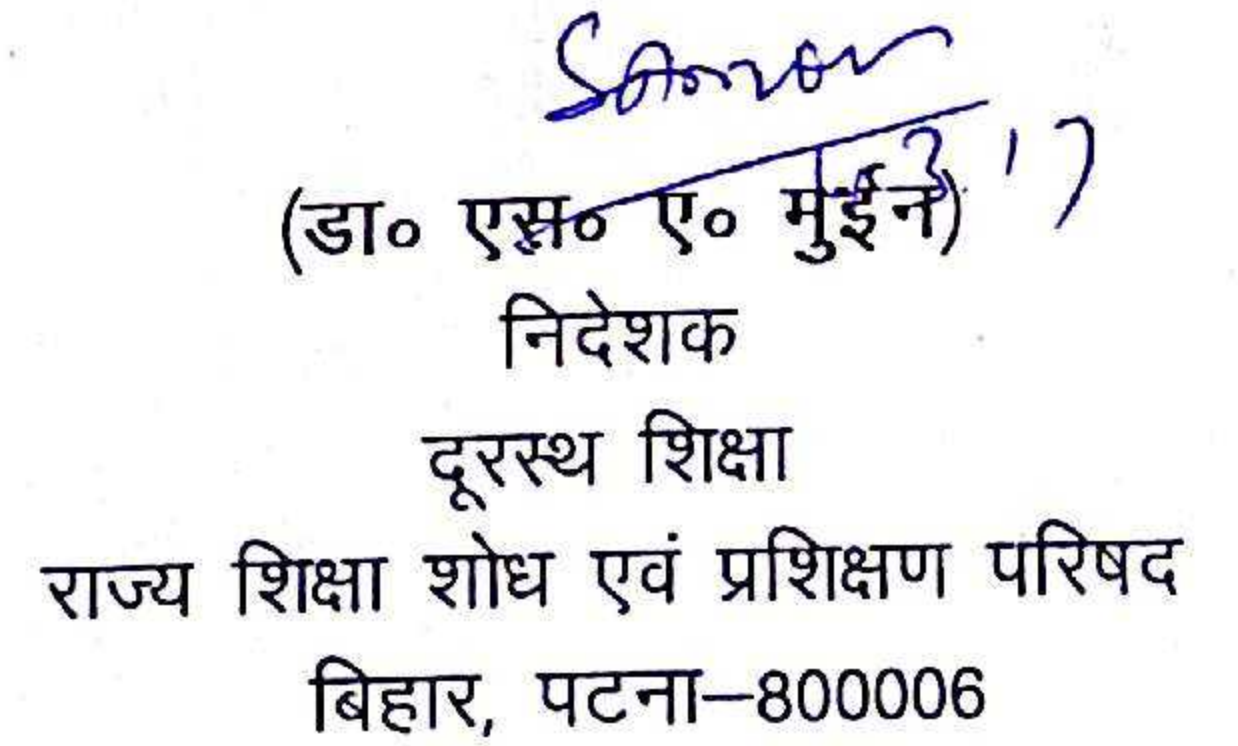 (डा० एस० ए० मुईन)
निदेशक
दूरस्थ शिक्षा
राज्य शिक्षा शोध एवं प्रशिक्षण परिषद
बिहार, पटना–800006